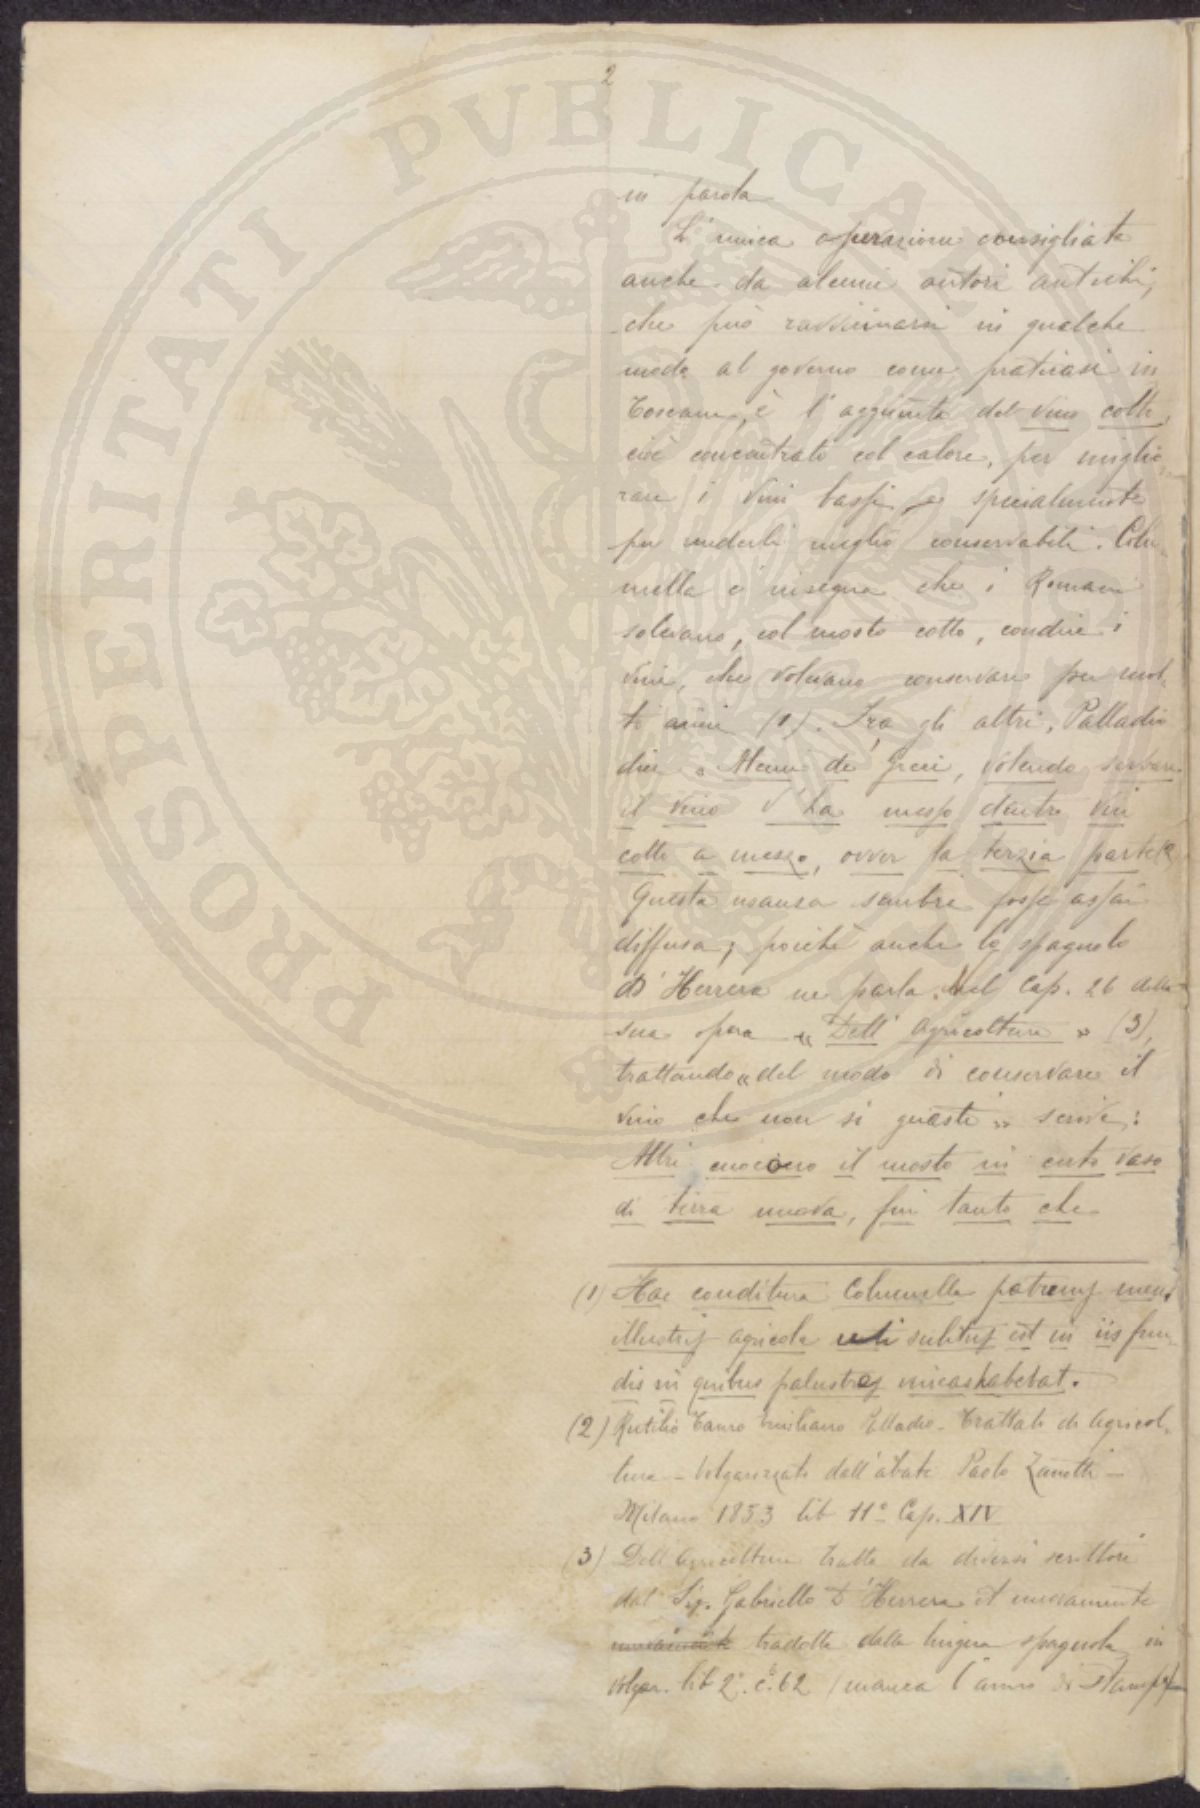 2
in parola
L'unica operazione consigliata
anche da alcuni autori antichi,
che può ravvicinarsi in qualche
modo al governo come praticasi in
Toscana, è l'aggiunta del vino cotto,
cioè concentrato col calore, per miglio-
rare i vini bassi e specialmente
per renderli meglio conservabili. Colu-
mella c'insegna che i Romani
solevano, col mosto cotto, condire i
vini, che volevano conservare per mol-
ti anni (1). Fra gli altri, Palladio
dice " Alcuni de Greci, volendo serbare
il vino v'ha messo dentro vin
cotto a mezzo, ovver la terzia parte (2)
Questa usanza sembra fosse assai
diffusa; poichè anche lo spagnolo
D'Herrera ne parla. Nel Cap. 26 della
sua opera " Dell' Agricoltura " (3),
trattando " del modo di conservare il
vino che non si guasti " scrive:
Altri cuociono il mosto in certo vaso
di terra nuova, fin tanto che
(1) Hac conditura Columella patruus meus
illustris agricola uti solitus est in iis fun-
dis in quibus palustres vineas habebat.
(2) Rutilio Tauro Emiliano Palladio - Trattato di Agricol-
tura - Volgarizzato dall'abate Paolo Zanotti -
Milano 1853 lib 11° Cap. XIV
(3) Dell'Agricoltura tratta da diversi scrittori
dal Sig. Gabriello D'Herrera et nuovamente
nuovamente tradotta dalla lingua spagnola in
volgar. lib 2°. c. 62 (manca l'anno di stampa)
PROSPERITATI PVBLICAE